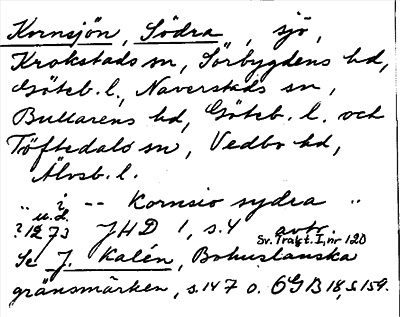 Kornsjön, Södra, sjö,
Krokstads sn, Sörbygdens hd,
Göteb. l., Naverstads sn,
Bullarens hd, Göteb. l. och
Töftedals sn, Vedbo hd,
Älvsb. l.
" i -- Kornsio sydra "
u.d.
?1273 JHD 1, s. 4 avtr.
Sv. Trakt. I, nr 120
Se J. Kalén, Bohuslänska
gränsmärken, s. 147 o. OGB 18, s 159.